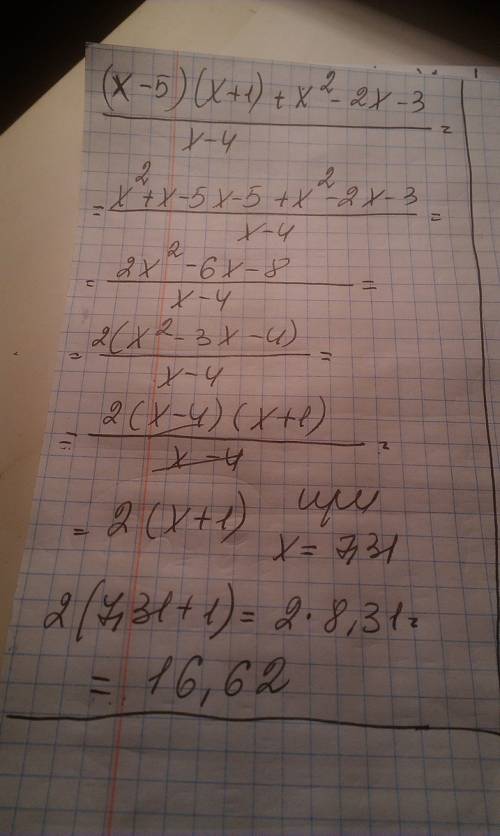 (x-5)(x+1)+x²-2x-3
x-4 =
= x²+x-5x-5+x²-2x-3 =
x-4
= 2x²-6x-8 =
x-4
= 2(x²-3x-4) =
x-4
= 2(x-4)(x+1) =
x-4
= 2(x+1) при
x=7,31
2(7,31+1)=2·8,31=
= 16,62